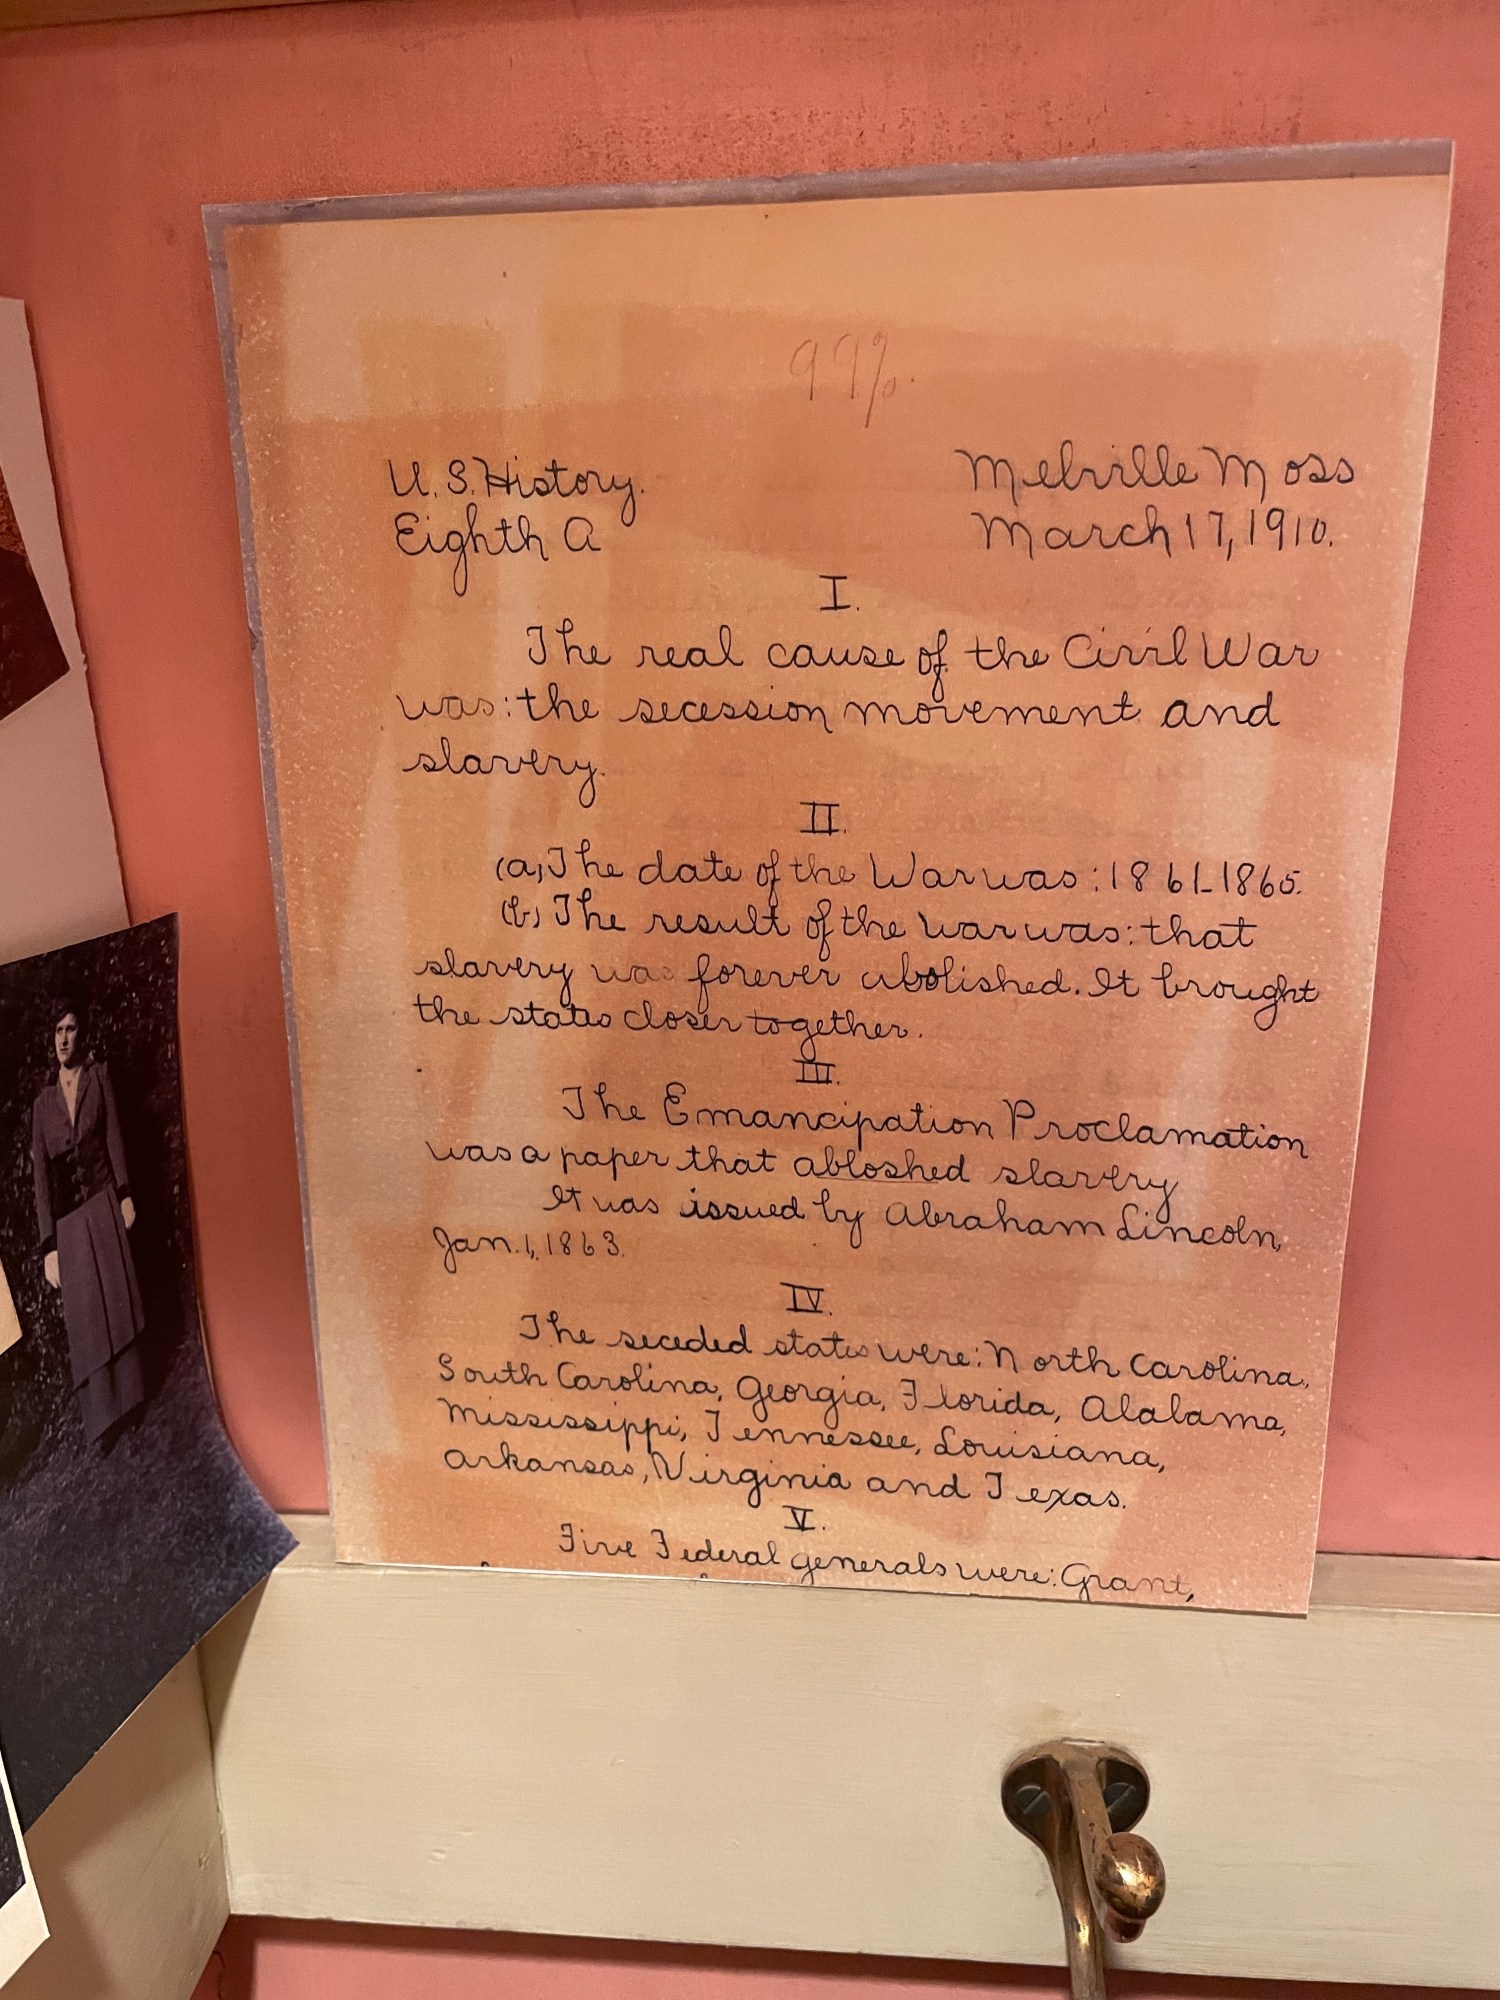 99%.
U.S. History. Melville Moss
Eighth A March 17, 1910.
I.
The real cause of the Civil War
was: the secession movement and
slavery.
II.
(a) The date of the War was: 1861-1865.
(b) The result of the war was: that
slavery was forever abolished. It brought
the states closer together.
III.
The Emancipation Proclamation
was a paper that abloshed slavery
It was issued by Abraham Lincoln,
Jan. 1, 1863.
IV.
The seceded states were: North Carolina,
South Carolina, Georgia, Florida, Alabama,
Mississippi, Tennessee, Louisiana,
Arkansas, Virginia and Texas.
V.
Five Federal generals were: Grant,